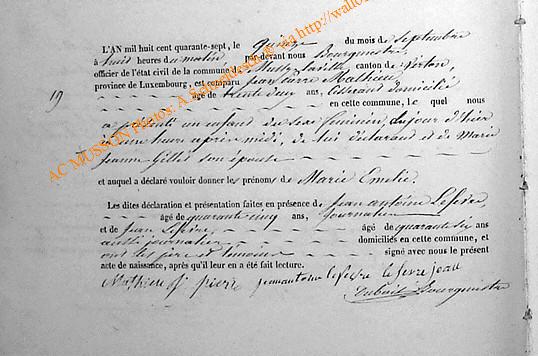 L'AN mil huit cent quarante-sept, le quinze du mois de Septembre
à huit heures du matin par-devant nous Bourgmestre,
officier de l'état civil de la commune de Mussy la ville canton de Virton,
province de Luxembourg, est comparu Jean Pierre Mathieu
19
âgé de trente deux ans, Tisserand domicilié
en cette commune, le quel nous
a présenté un enfant du sexe féminin, né le jour d'hier
à une heure après midi, de lui déclarant et de Marie
Jeanne Gilles son épouse
et auquel a déclaré vouloir donner les prénoms de Marie Emélie.
Les dites déclaration et présentation faites en présence de Jean antoine Lefevre
âgé de quarante cinq ans, journalier
et de Jean Lefevre âgé de quarante six ans
aussi journalier domiciliés en cette commune, et
ont les père et témoins signé avec nous le présent
acte de naissance, après qu'il leur en a été fait lecture.
Mathieu j pierre jean antoine lefevre lefevre jean
Bourgmestre
AC MUSSON Photos: A.Schmoetten & via http://wallo